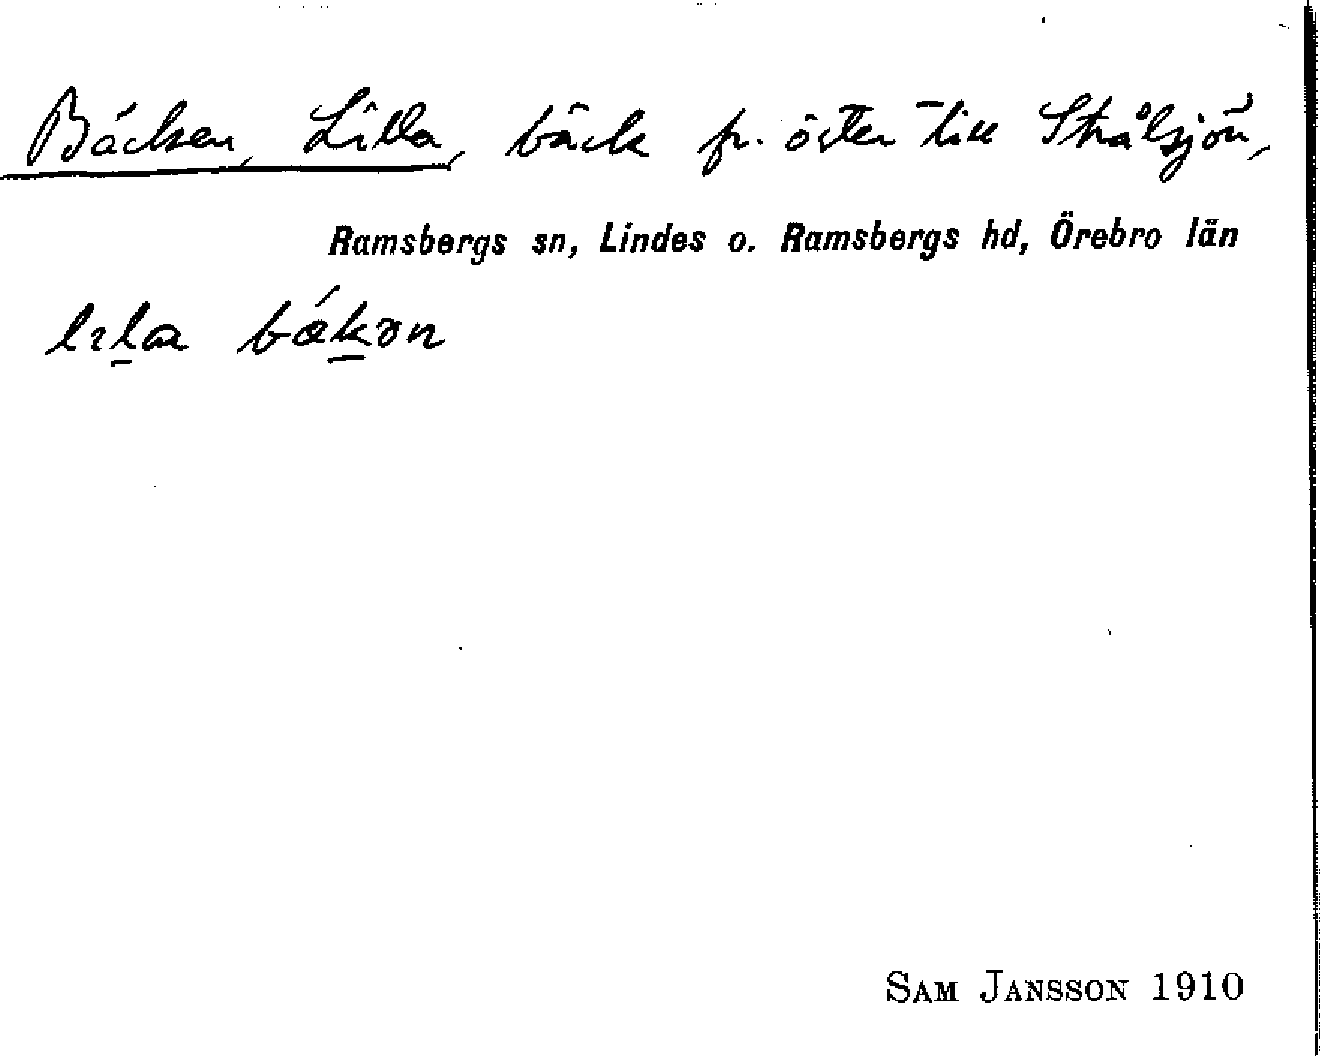 Bäcken, Lilla, bäck fr. öster till Strålsjön,
Ramsbergs sn, Lindes o. Ramsbergs hd, Örebro län
lɪl̲a bǽk̲ən
SAM JANSSON 1910